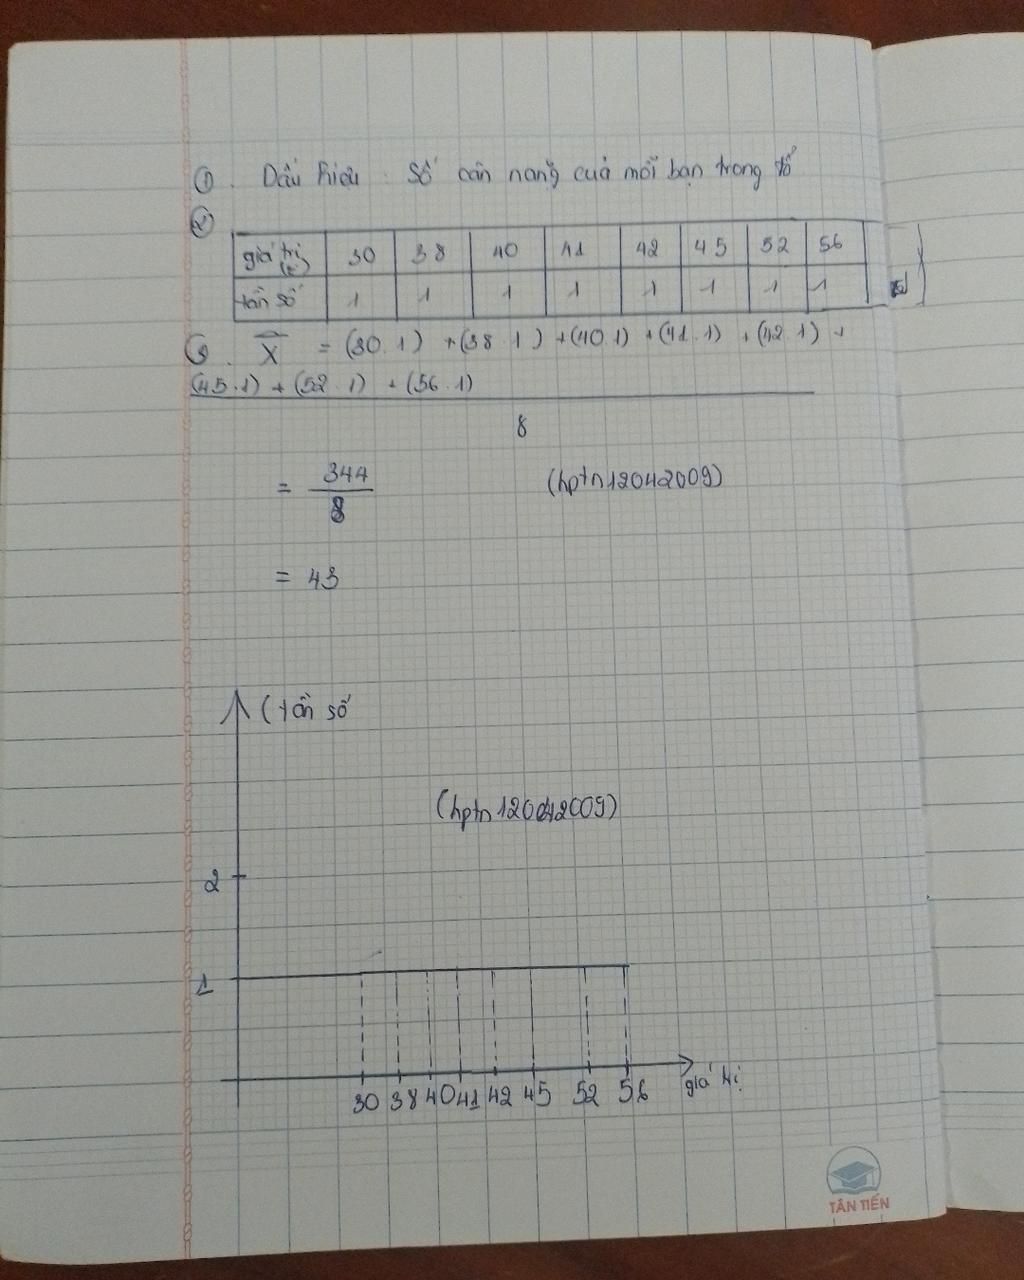 ① . Dấu hiệu : Số cân nặng của mỗi bạn trong tổ
②
giá trị (x) 30 38 40 41 42 45 52 56
tần số 1 1 1 1 1 1 1 1
③ . X̄ = (30.1) + (38.1) + (40.1) + (41.1) + (42.1) +
(45.1) + (52.1) + (56.1)
8
= 344
8
(hptn12042009)
= 43
(tần số
(hptn12042009)
2
1
30 38 40 41 42 45 52 56 giá trị
TÂN TIẾN